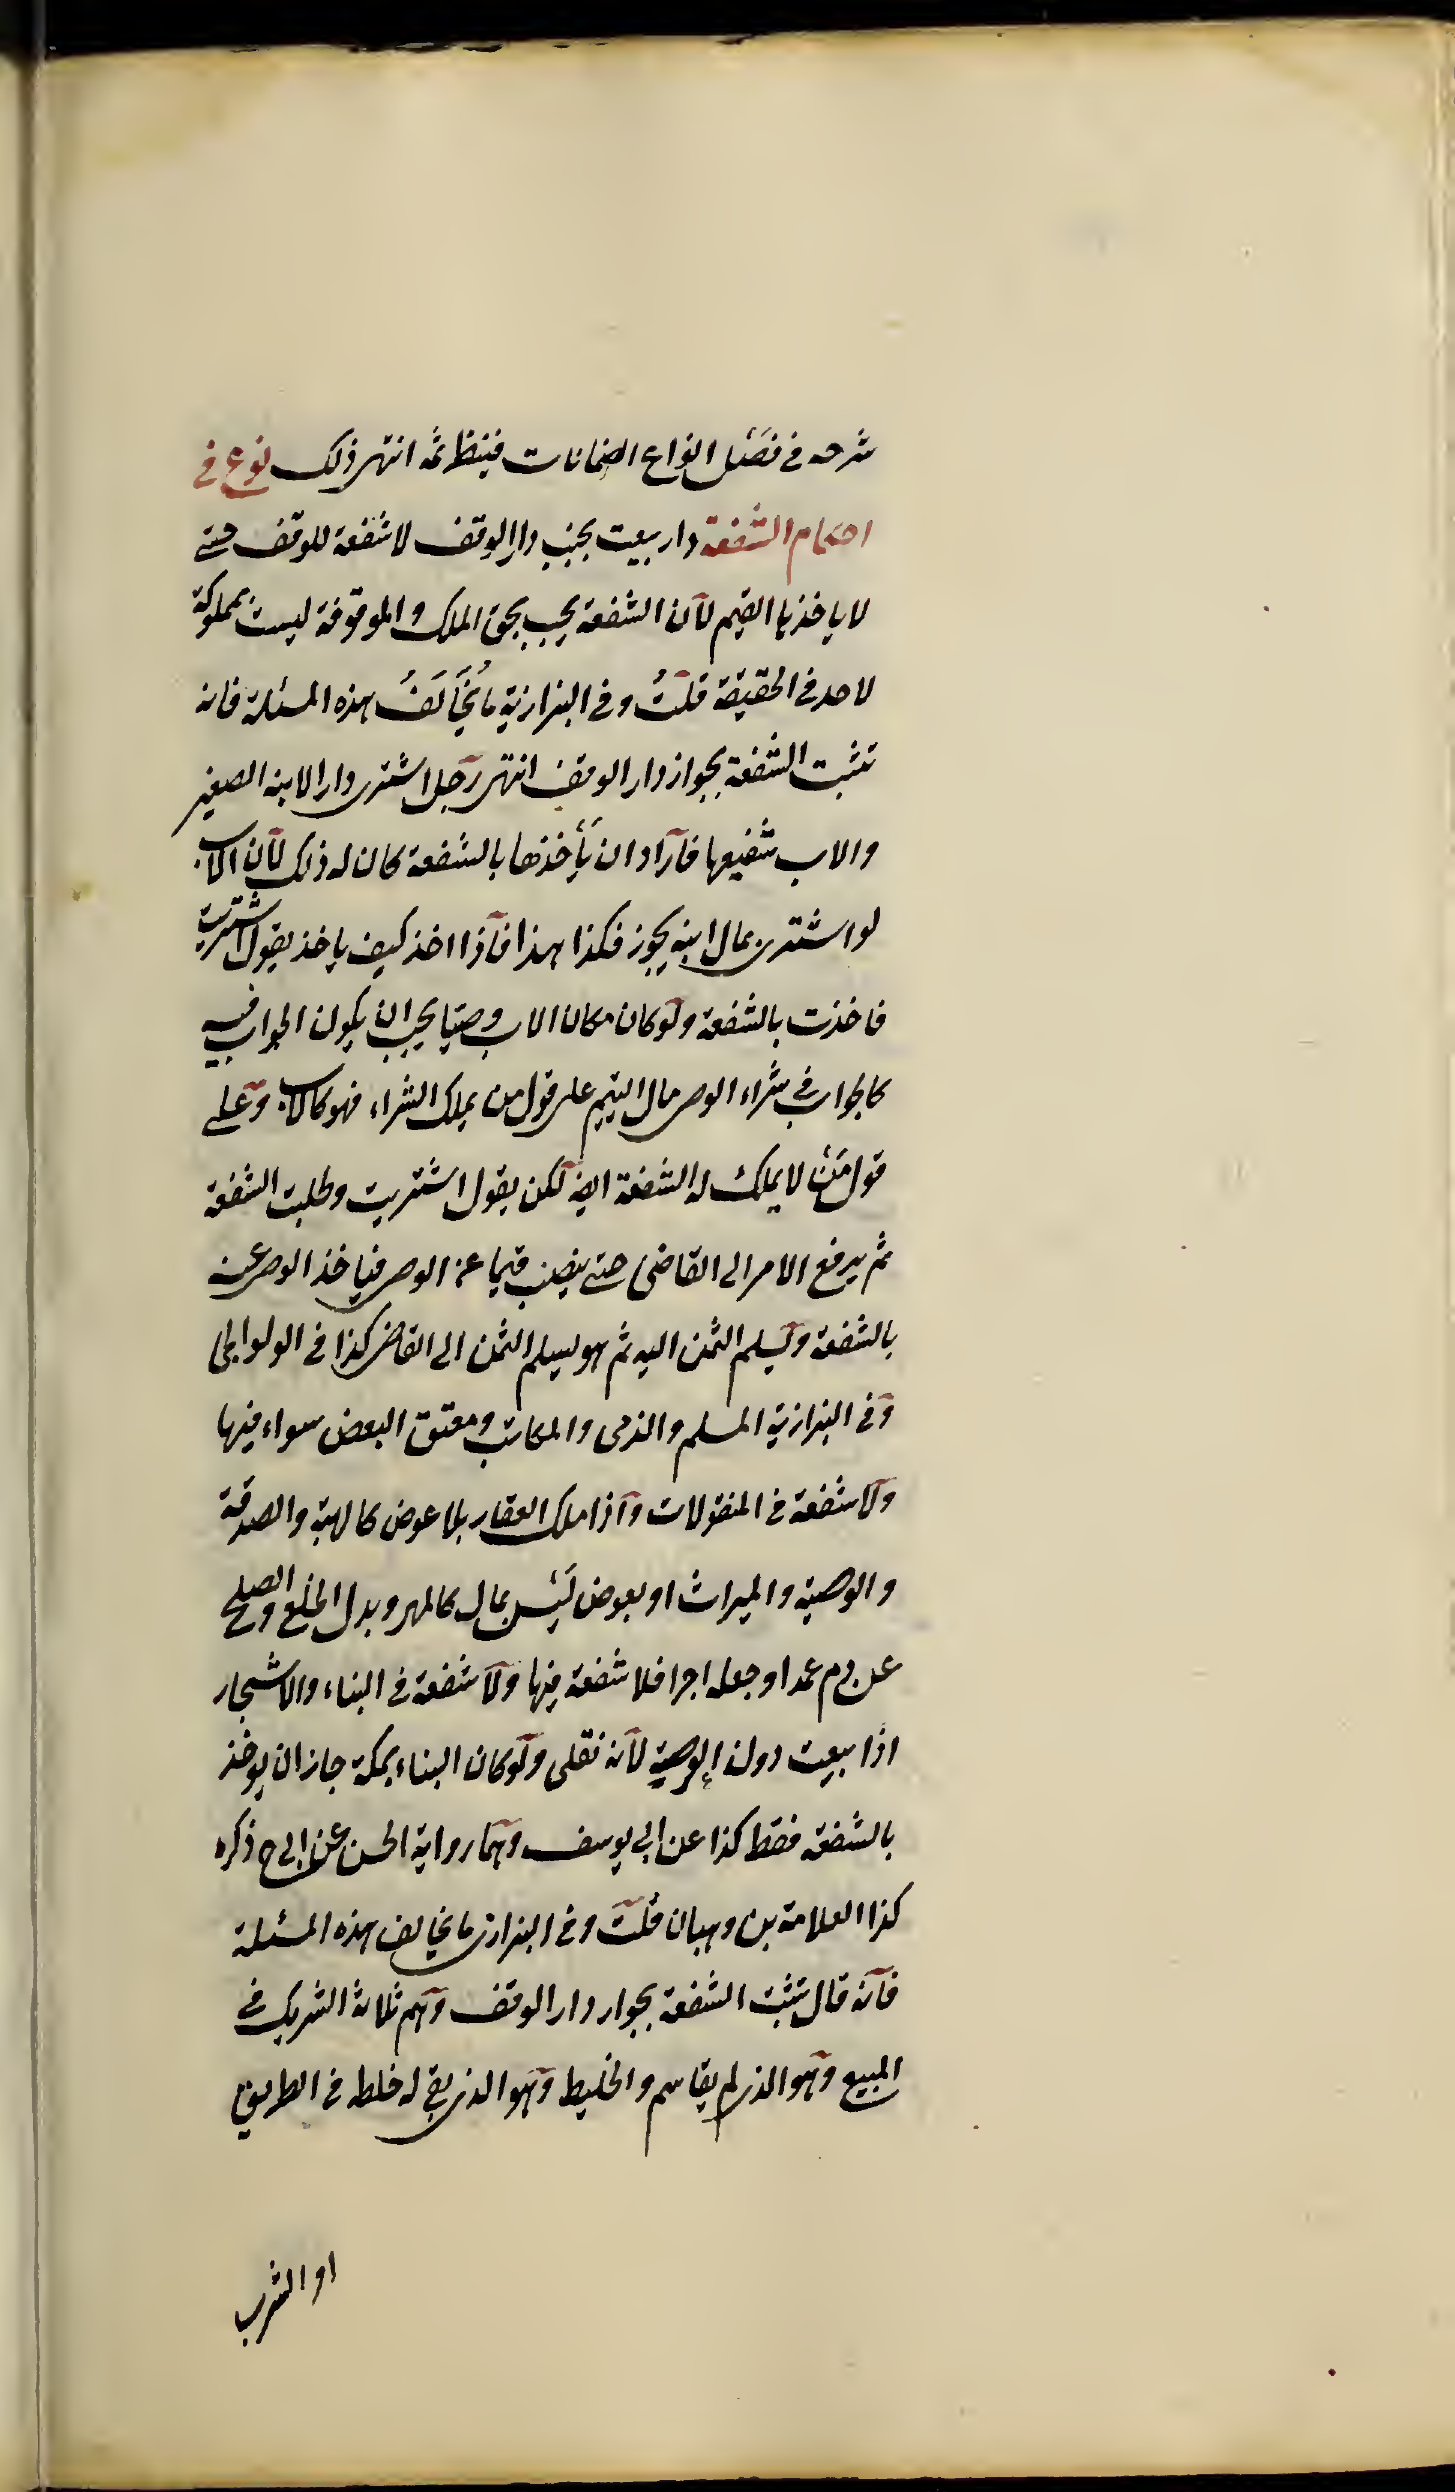 شرحه في فصل انواع الضمانات فينظر ثمه انتهى ذلك نوع في
احكام الشفعة دار بيعت بجنب دار الوقف لا شفعة للوقف حتى
لا ياخذها القيم لان الشفعة يجب بحق الملك والموقوفة ليست بمملوكة
لاحد في الحقيقة قلت وفي البزازية ما يخالف هذه المسئلة فانه
تثبت الشفعة بجواز دار الوقف انتهى رجل اشترى دارا لابنه الصغير
والاب شفيعها فاراد ان يأخذها بالشفعة كان له ذلك لان الاب
لو اشترى بمال ابنه يجوز فكذا هذا فاذا اخذ كيف ياخذ يقول اشتريت
فاخذت بالشفعة ولو كان مكان الاب وصيا يجب ان يكون الجواب فيه
كالجواب في شراء الوصى مال اليتيم على قول من يملك الشراء فهو كالاب وعلى
قول من لا يملك له الشفعة ايضا لكن يقول اشتريت وطلبت الشفعة
ثم يرفع الامر الى القاضى حتى ينصب قيما عن الوصى فياخذ الوصى عنه
بالشفعة ويسلم الثمن اليه ثم هو يسلم الثمن الى القاضى كذا في الولوالجى
وفي البزازية المسلم والذمى والمكاتب ومعتق البعض سواء فيها
ولا شفعة في المنقولات واذا ملك العقار بلا عوض كالهبة والصدقة
والوصية والميراث او بعوض ليس بمال كالمهر وبدل الخلع والصلح
عن دم عمد او جعله اجرا فلا شفعة فيها ولا شفعة في البناء والاشجار
اذا بيعت دون الوصية لانه نقلى ولو كان البناء بمكة جاز ان يوخذ
بالشفعة فقط كذا عن ابي يوسف وهما رواية الحسن عن ابي ح ذكره
كذا العلامة بن وهبان قلت وفي البزازى ما يخالف هذه المسئلة
فانه قال تثبت الشفعة بجوار دار الوقف وهم ثلاثة الشريك في
المبيع وهو الذى لم يقاسم والخليط وهو الذى بقي له خلطه في الطريق
او الشرب